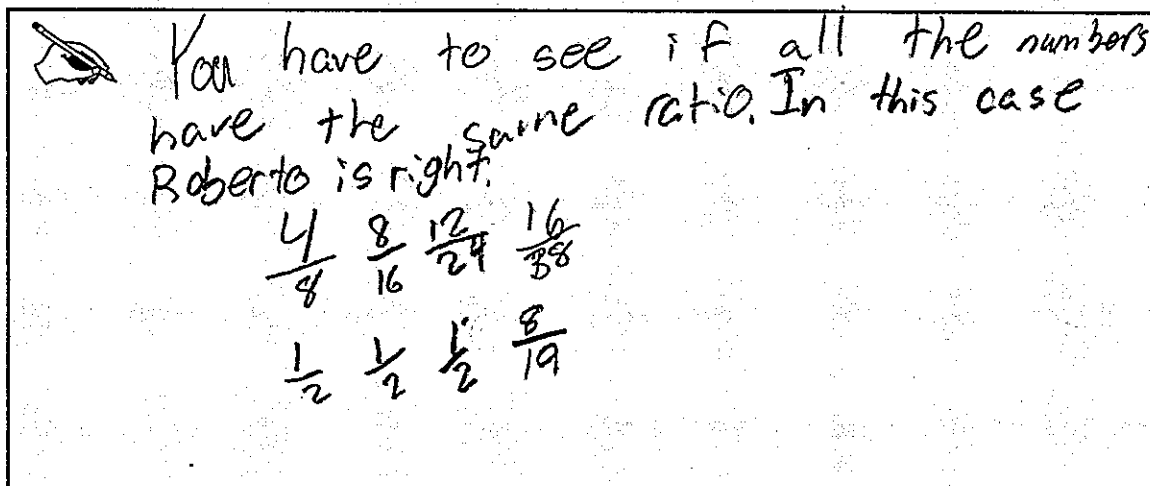 You have to see if all the numbers
have the same ratio. In this case
Roberto is right.
4/8 8/16 12/24 16/38
1/2 1/2 1/2 8/19